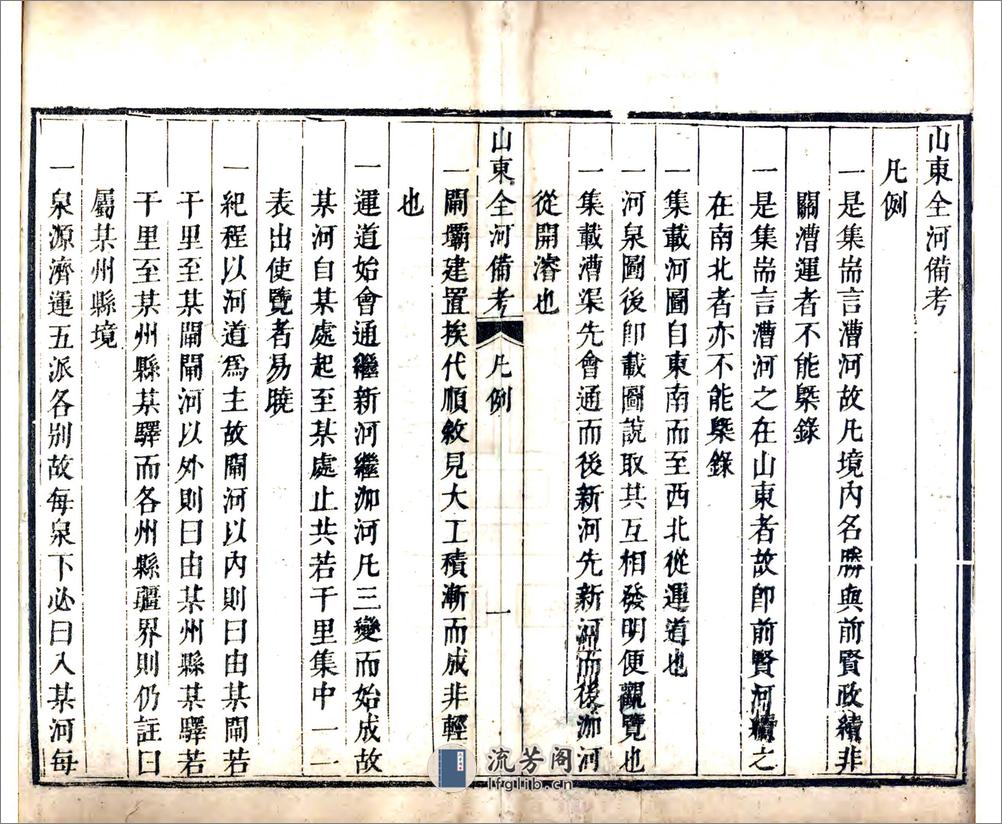 山東全河備考
凡例
一是集耑言漕河故凡境內名勝與前賢政績非
關漕運者不能槩錄
一是集耑言漕河之在山東者故卽前賢河績之
在南北者亦不能槩錄
一集載河圖自東南而至西北從運道也
一河泉圖後卽載圖說取其互相發明便觀覽也
一集載漕渠先會通而後新河先新河而後泇河
從開濬也
山東全河備考 凡例 一
一閘壩建置挨代順敘見大工積漸而成非輕
也
一運道始會通繼新河繼泇河凡三變而始成故
某河自某處起至某處止共若干里集中一一
表出使覽者易曉
一紀程以河道爲主故閘河以內則曰由某閘若
干里至某閘閘河以外則曰由某州縣某驛若
干里至某州縣某驛而各州縣疆界則仍註曰
屬某州縣境
一泉源濟運五派各別故每泉下必曰入某河每
流芳阁
lfglib.cn